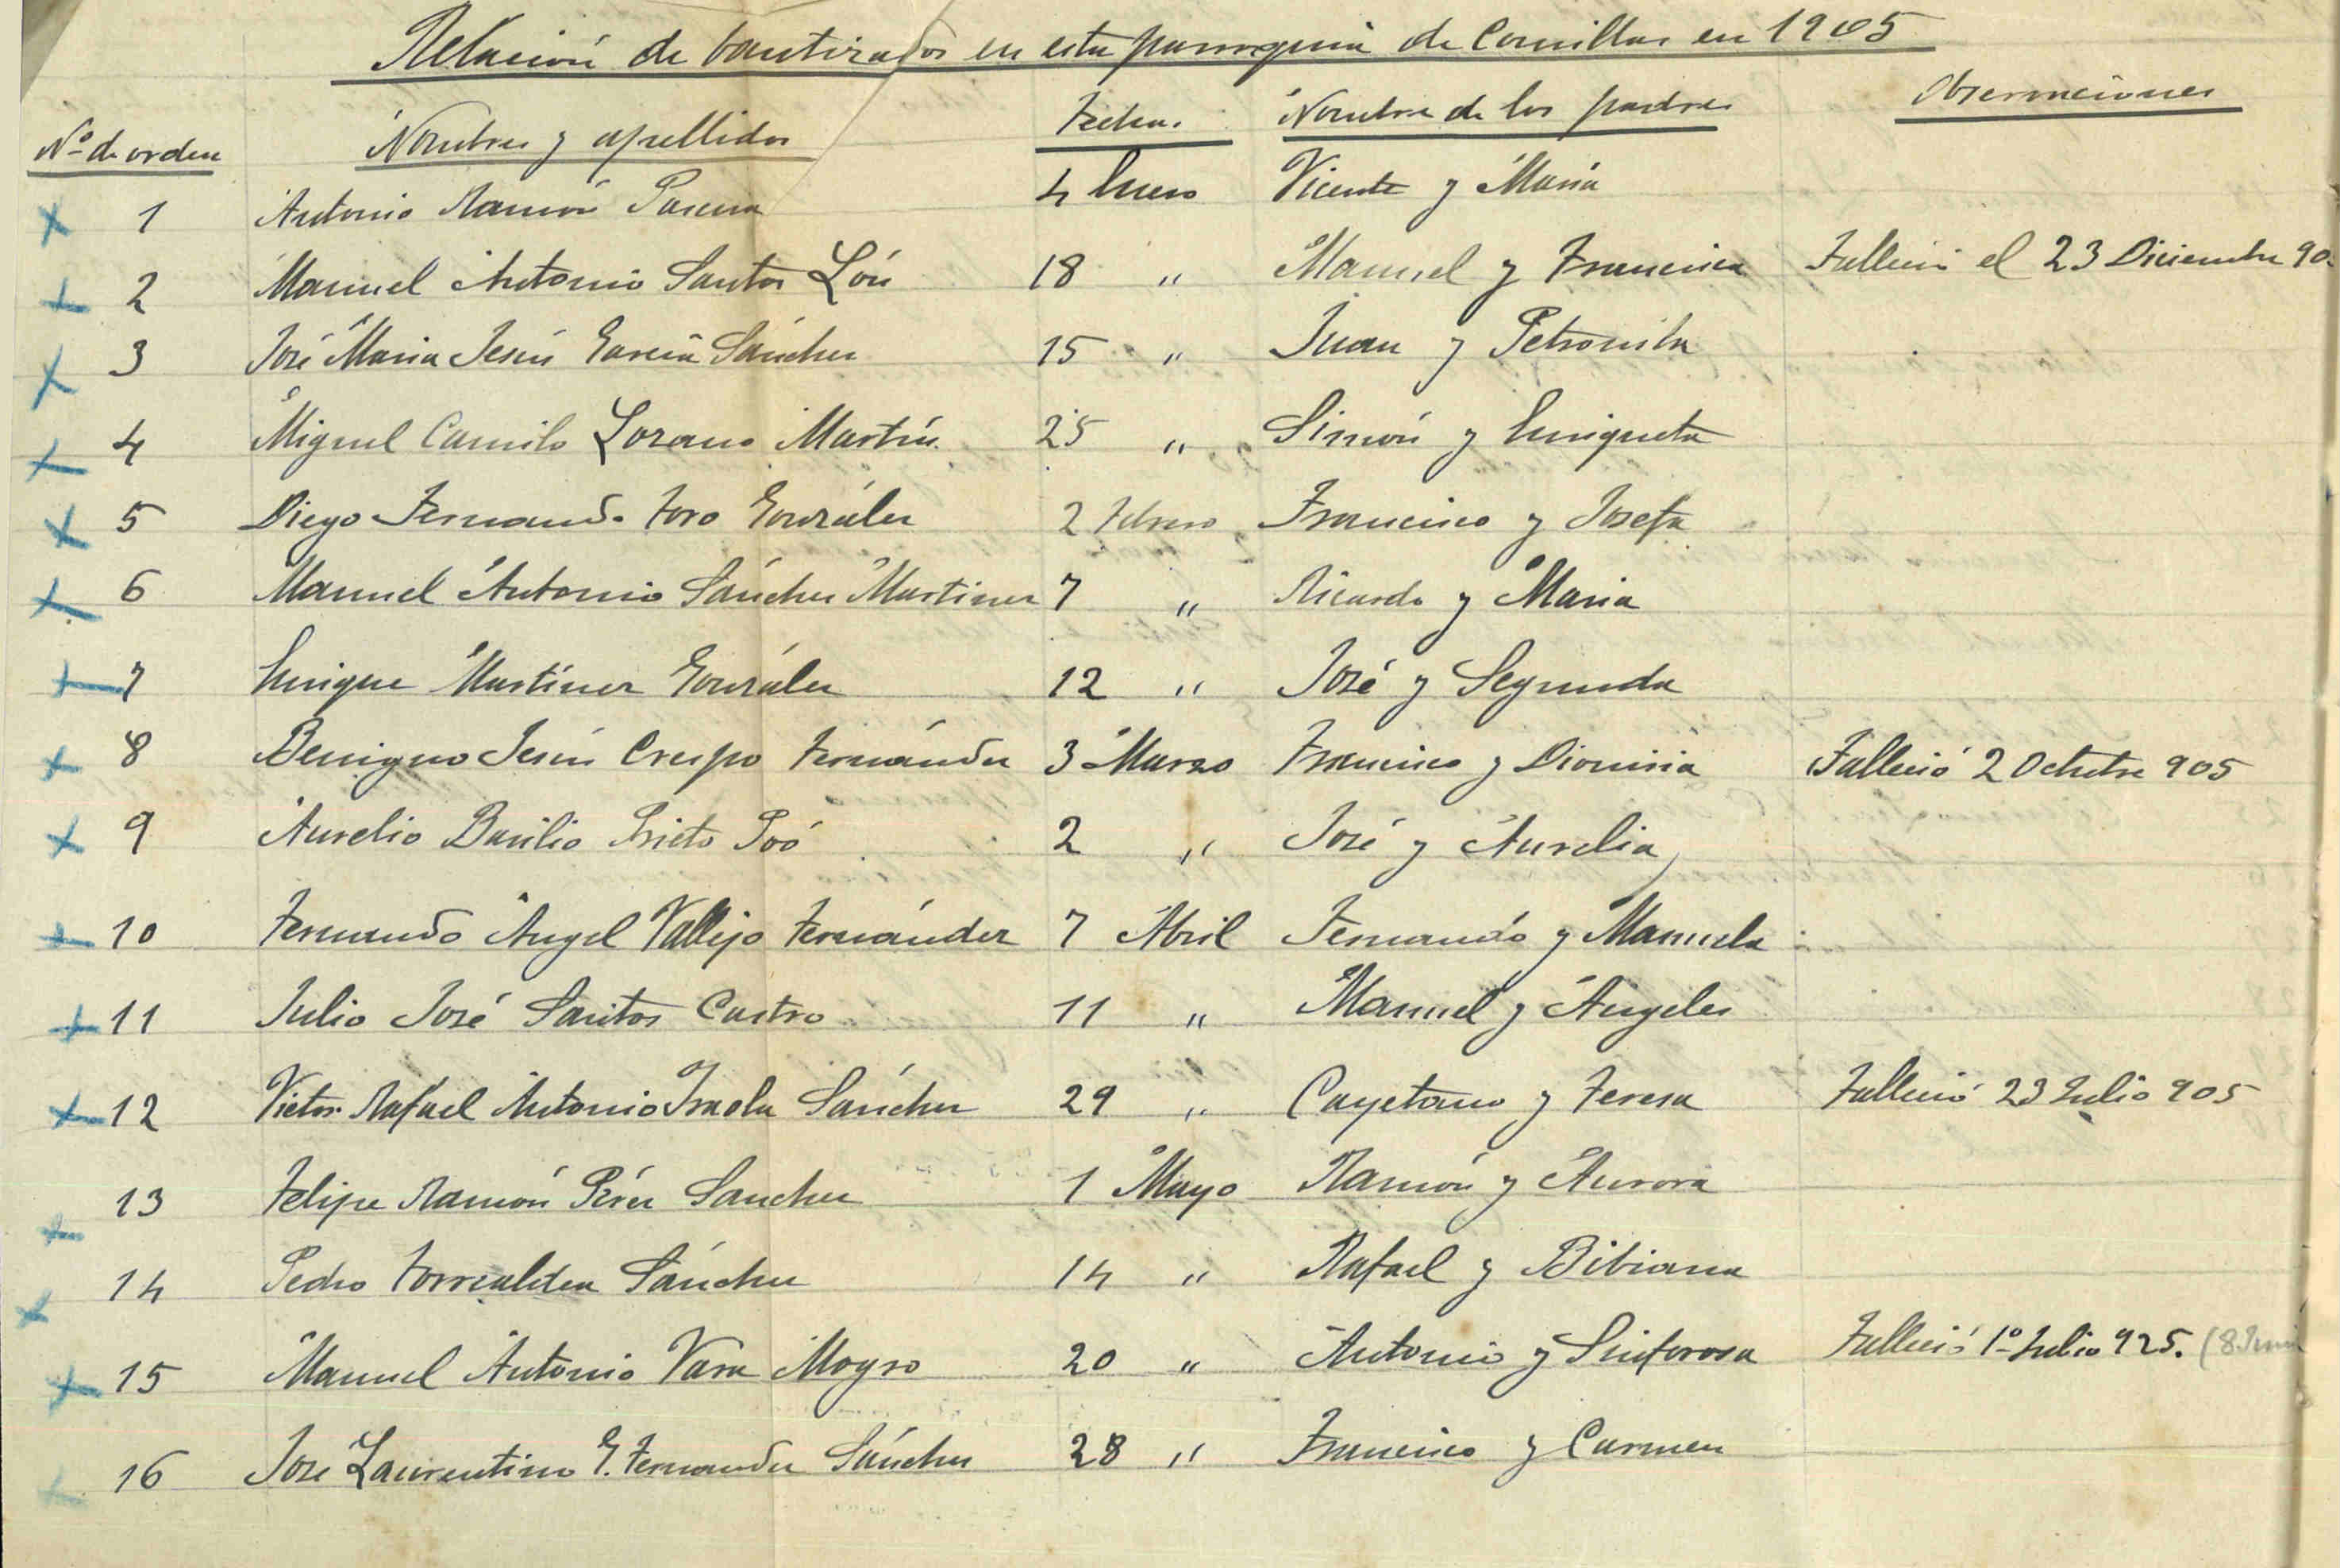 Relación de bautizados en esta parroquia de Comillas en 1905
Nº de orden Nombres y apellidos Fecha. Nombre de los padres Observaciones
1 Antonio Ramón 4 Enero Vicente y María
2 Manuel Antonio Santos 18 " Manuel y Francisca Falleció el 23 Diciembre 90
3 José Maria Jesús García Sánchez 15 " Juan y Petronila
4 Miguel Camilo Lozano Martín. 25 " Simón y Enriqueta
5 Diego Fernando Toro González 2 Febrero Francisco y Josefa
6 Manuel Antonio Sánchez Martinez 7 " Ricardo y Maria
7 Enrique Martínez González 12 " José y Segunda
8 Benigno Jesús Crespo Fernández 3 Marzo Francisco y Dionisia Falleció 2 Octubre 905
9 Aurelio Basilio Prieto Poó 2 " José y Aurelia
10 Fernando Angel Vallejo Fernández 7 Abril Fernando y Manuela
11 Julio José Santos Castro 11 " Manuel y Angeles
12 Victor Rafael Antonio Sánchez 29 " Cayetano y Teresa Falleció 23 Julio 905
13 Felipe Ramón Pérez Sanchez 1 Mayo Ramón y Aurora
14 Pedro Sánchez 14 " Rafael y Bibiana
15 Manuel Antonio Vara Moyso 20 " Antonio y Sinforosa Falleció 1º Julio 925. (8 Juni
16 José Laurentino G. Fernandez Sánchez 28 " Francisco y Carmen